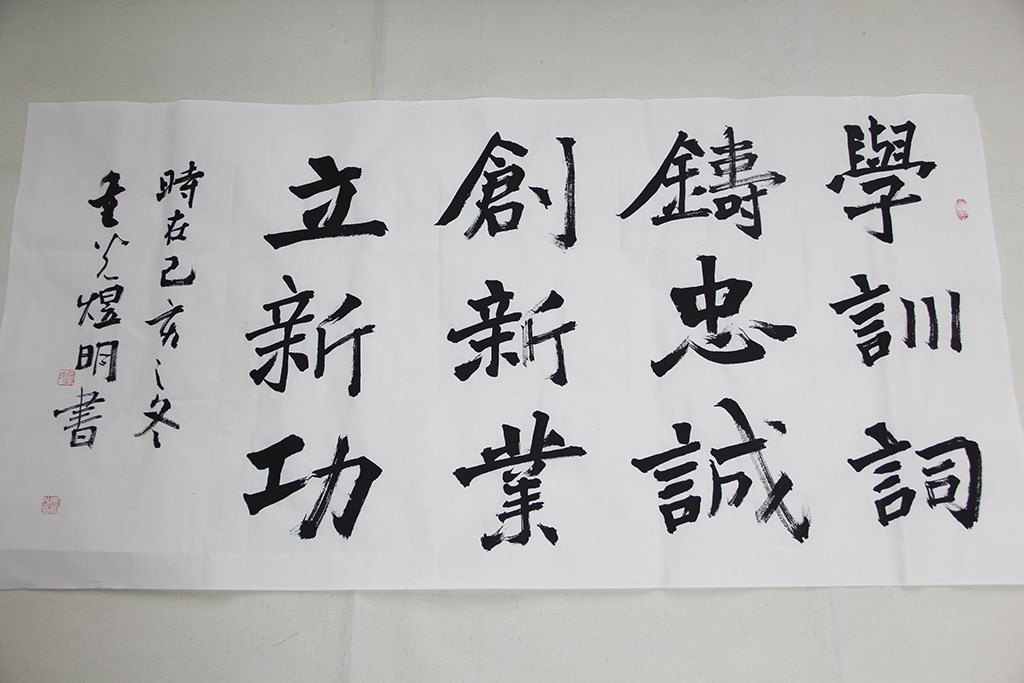 學訓詞
鑄忠誠
創新業
立新功
時在己亥之冬
煜明書